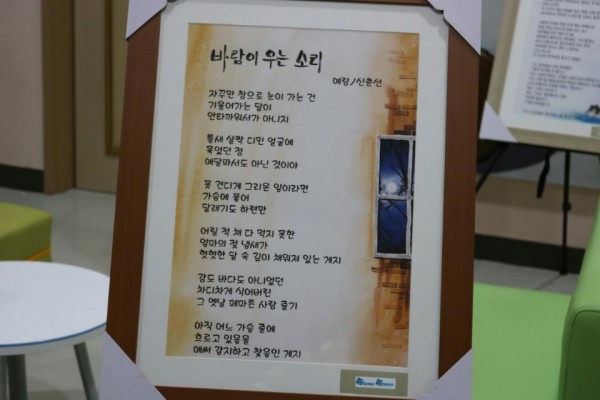 바람이 우는 소리
예랑/신춘선
자꾸만 창으로 눈이 가는 건
기울어가는 달이
안타까워서가 아니지
틈새 살짝 디민 얼굴에
묶였던 정
애달파서도 아닌 것이야
못 견디게 그리운 일이라면
가슴에 묻어
달래기도 하련만
어릴 적 채 다 먹지 못한
엄마의 젖 냄새가
헛헛한 달 속 깊이 채워져 있는 게지
강도 바다도 아니었던
차디차게 식어버린
그 옛날 메마른 사랑 줄기
아직 어느 가슴 골에
흐르고 있음을
애써 감지하고 찾음인 게지